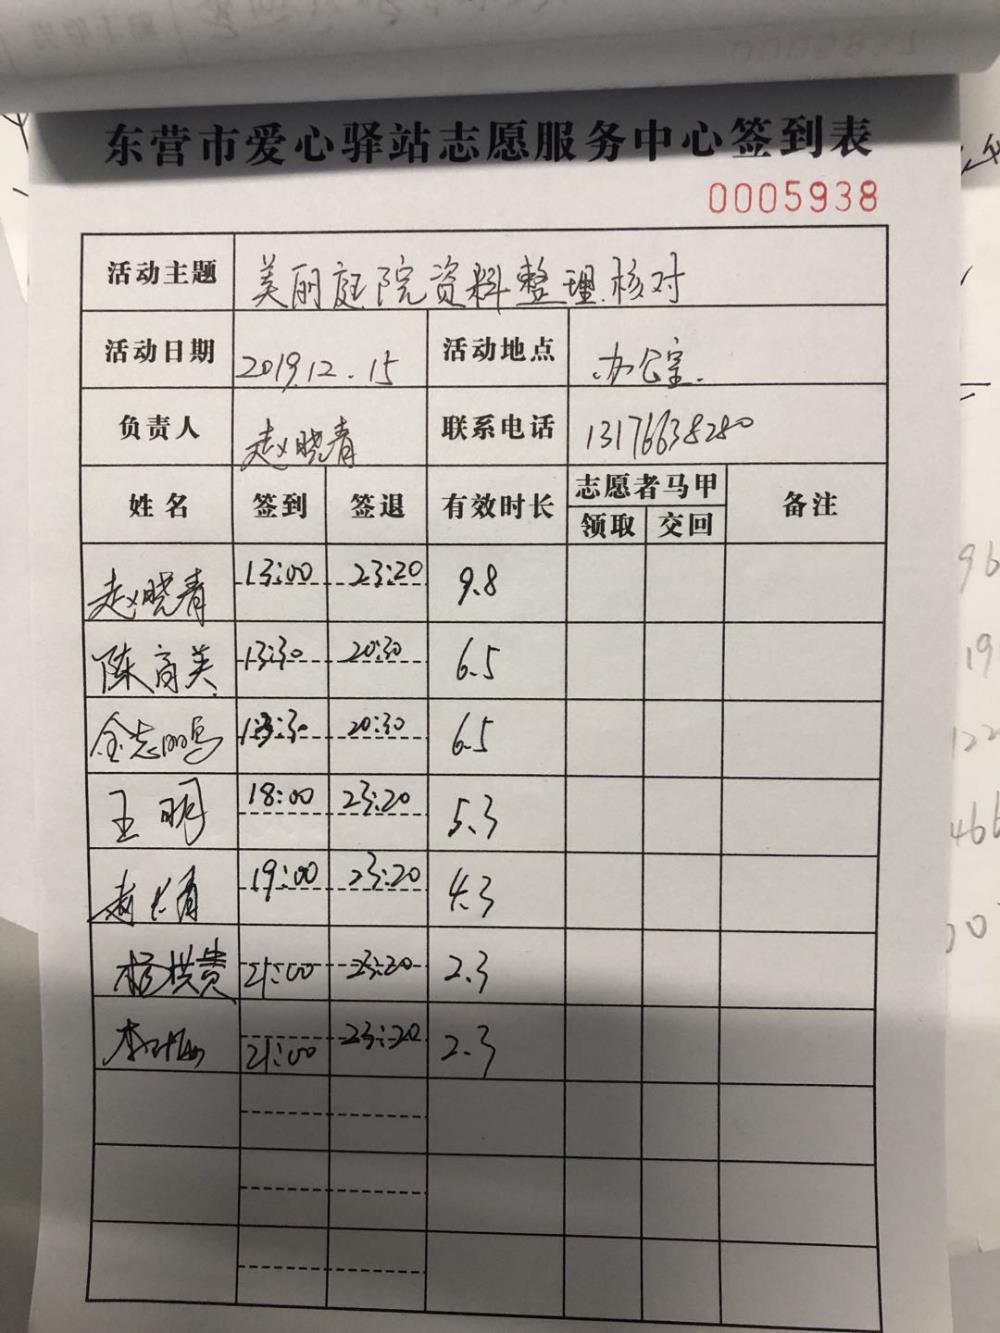 东营市爱心驿站志愿服务中心签到表
0005938
活动主题 美丽庭院资料整理.核对
活动日期 2019.12.15 活动地点 办公室.
负责人 赵晓青 联系电话 13176638280
姓名 签到 签退 有效时长 志愿者马甲 备注
领取 交回
赵晓青 13:00 23:20 9.8
陈育美 13:30 20:30 6.5
金志鹏 13:30 20:30 6.5
王明 18:00 23:20 5.3
19:00 23:20 4.3
杨洪贵 21:00 23:20 2.3
21:00 23:20 2.3